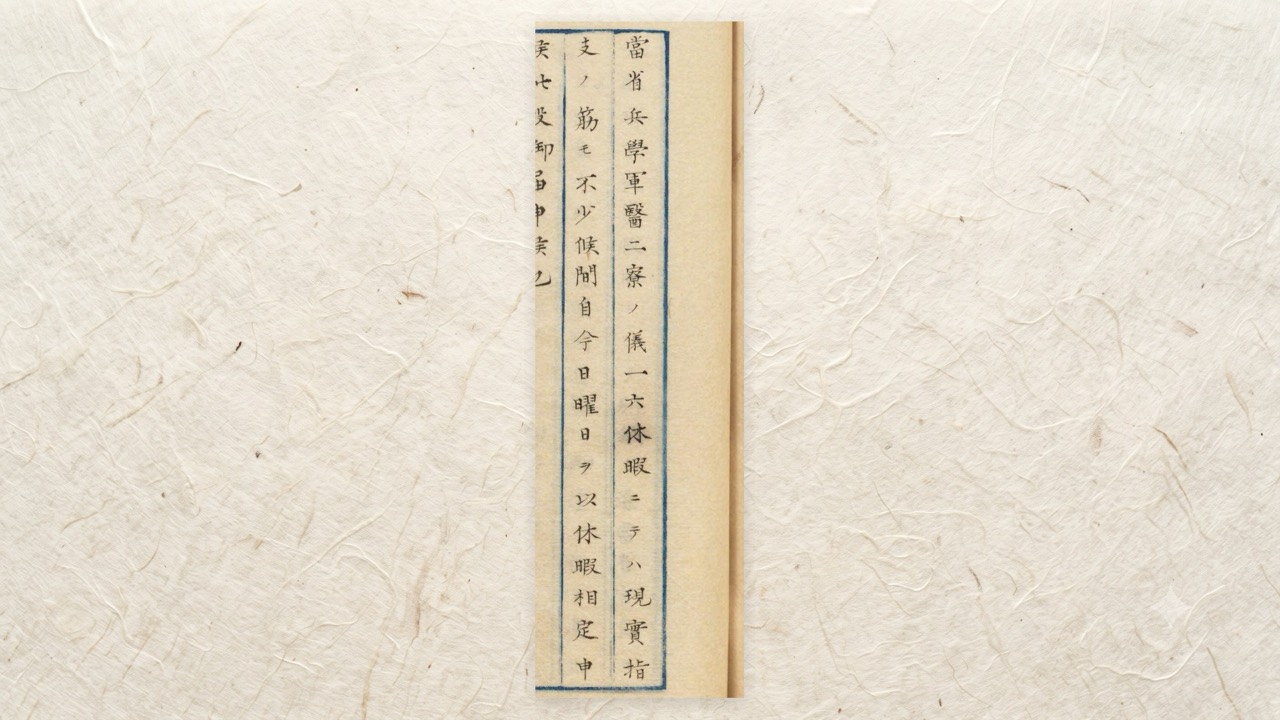 當省兵學軍醫二寮ノ儀一六休暇ニテハ現實指
支ノ筋モ不少候間自今日曜日ヲ以休暇相定申
候此段御届申候也